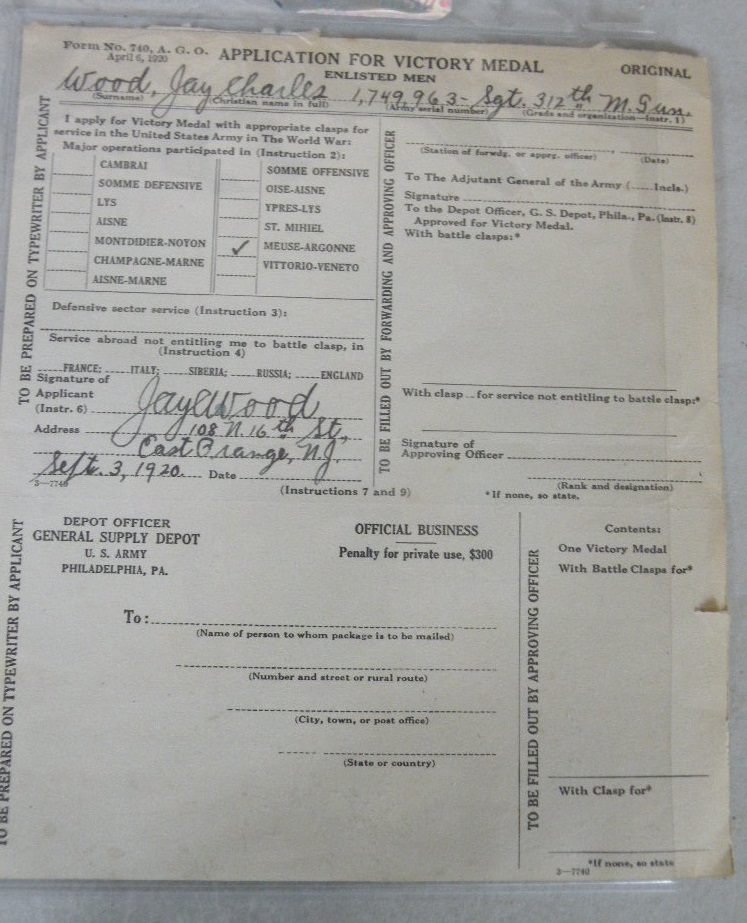 Form No. 740, A. G. O.
April 6, 1920
APPLICATION FOR VICTORY MEDAL
ENLISTED MEN
ORIGINAL
Wood, Jay Charles 1,749,963- Sgt. 312th M. Gun.
(Surname) (Christian name in full) (Army serial number) (Grade and organization—Instr. 1)
TO BE PREPARED ON TYPEWRITER BY APPLICANT
I apply for Victory Medal with appropriate clasps for
service in the United States Army in The World War:
Major operations participated in (Instruction 2):
CAMBRAI
SOMME DEFENSIVE
LYS
AISNE
MONTDIDIER-NOYON
CHAMPAGNE-MARNE
AISNE-MARNE
SOMME OFFENSIVE
OISE-AISNE
YPRES-LYS
ST. MIHIEL
✓ MEUSE-ARGONNE
VITTORIO-VENETO
Defensive sector service (Instruction 3):
Service abroad not entitling me to battle clasp, in
(Instruction 4)
FRANCE; ITALY; SIBERIA; RUSSIA; ENGLAND
Signature of
Applicant
(Instr. 6) Jay C Wood
Address 108 N. 16th St.,
East Orange, N.J.
Sept. 3, 1920. Date
3—7740
(Instructions 7 and 9)
TO BE FILLED OUT BY FORWARDING AND APPROVING OFFICER
(Station of forwdg. or apprg. officer) (Date)
To The Adjutant General of the Army (......Incls.)
Signature
To the Depot Officer, G. S. Depot, Phila., Pa. (Instr. 8)
Approved for Victory Medal.
With battle clasps:*
With clasp ... for service not entitling to battle clasp:*
Signature of
Approving Officer
(Rank and designation)
*If none, so state.
TO BE PREPARED ON TYPEWRITER BY APPLICANT
DEPOT OFFICER
GENERAL SUPPLY DEPOT
U. S. ARMY
PHILADELPHIA, PA.
OFFICIAL BUSINESS
Penalty for private use, $300
To:
(Name of person to whom package is to be mailed)
(Number and street or rural route)
(City, town, or post office)
(State or country)
TO BE FILLED OUT BY APPROVING OFFICER
Contents:
One Victory Medal
With Battle Clasps for*
With Clasp for*
*If none, so state
3—7740